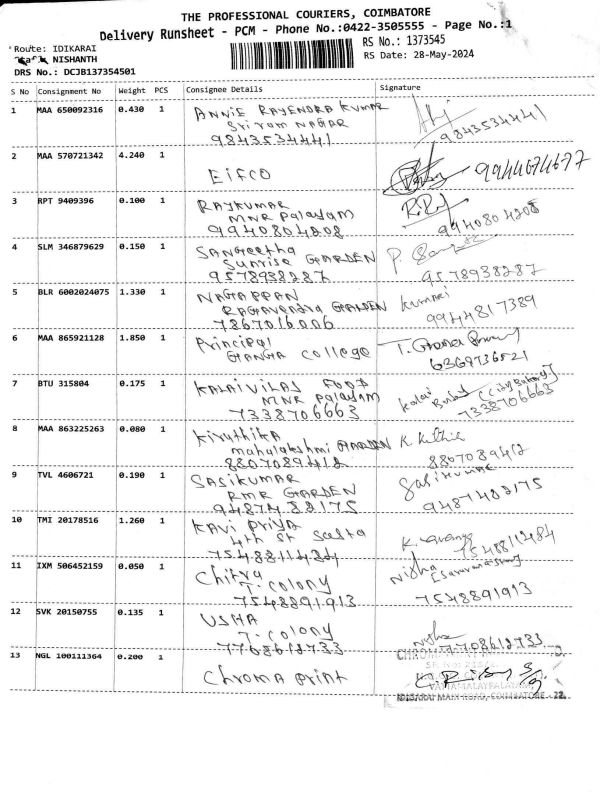 THE PROFESSIONAL COURIERS, COIMBATORE
Delivery Runsheet - PCM - Phone No.:0422-3505555 - Page No.:1
Route: IDIKARAI
RS No.: 1373545
NISHANTH
RS Date: 28-May-2024
DRS No.: DCJB137354501
S No Consignment No Weight PCS Consignee Details Signature
1 MAA 650092316 0.430 1 ANNIE RAYENDRA KUMAR
Sriram NAGAR
9843534441 9843534441
2 MAA 570721342 4.240 1 Eifco 9944674677
3 RPT 9409396 0.100 1 RAJKUMAR
MNR Palayam
9940804208 9940804208
4 SLM 346879629 0.150 1 SANGeetha
Sunrise GARDEN
9578938287 9578938287
5 BLR 6002024075 1.330 1 NAGAPPAN
RAGAvendra GARDEN
7867016006 9944817389
6 MAA 865921128 1.850 1 Principal
GANGA College 6369736521
7 BTU 315804 0.175 1 KALAIVILAS FOOD
MNR Palayam
7338706663 7338706663
8 MAA 863225263 0.080 1 Kiruthika
mahalakshmi GARDEN
8807089412 8807089412
9 TVL 4606721 0.190 1 SASIKUMAR Sasikumar
RMR GARDEN
9487483175 9487483175
10 TMI 20178516 1.260 1 KAVI PRIYA
4th St
7548811484 7548811484
11 IXM 506452159 0.050 1 Chitra Nisha
T-Colony
7548891913 7548891913
12 SVK 20150755 0.135 1 USHA Nisha
T-Colony
7708612733 7708612733
13 NGL 100111364 0.200 1 Chroma Print
MAIN ROAD, COIMBATORE - 22.